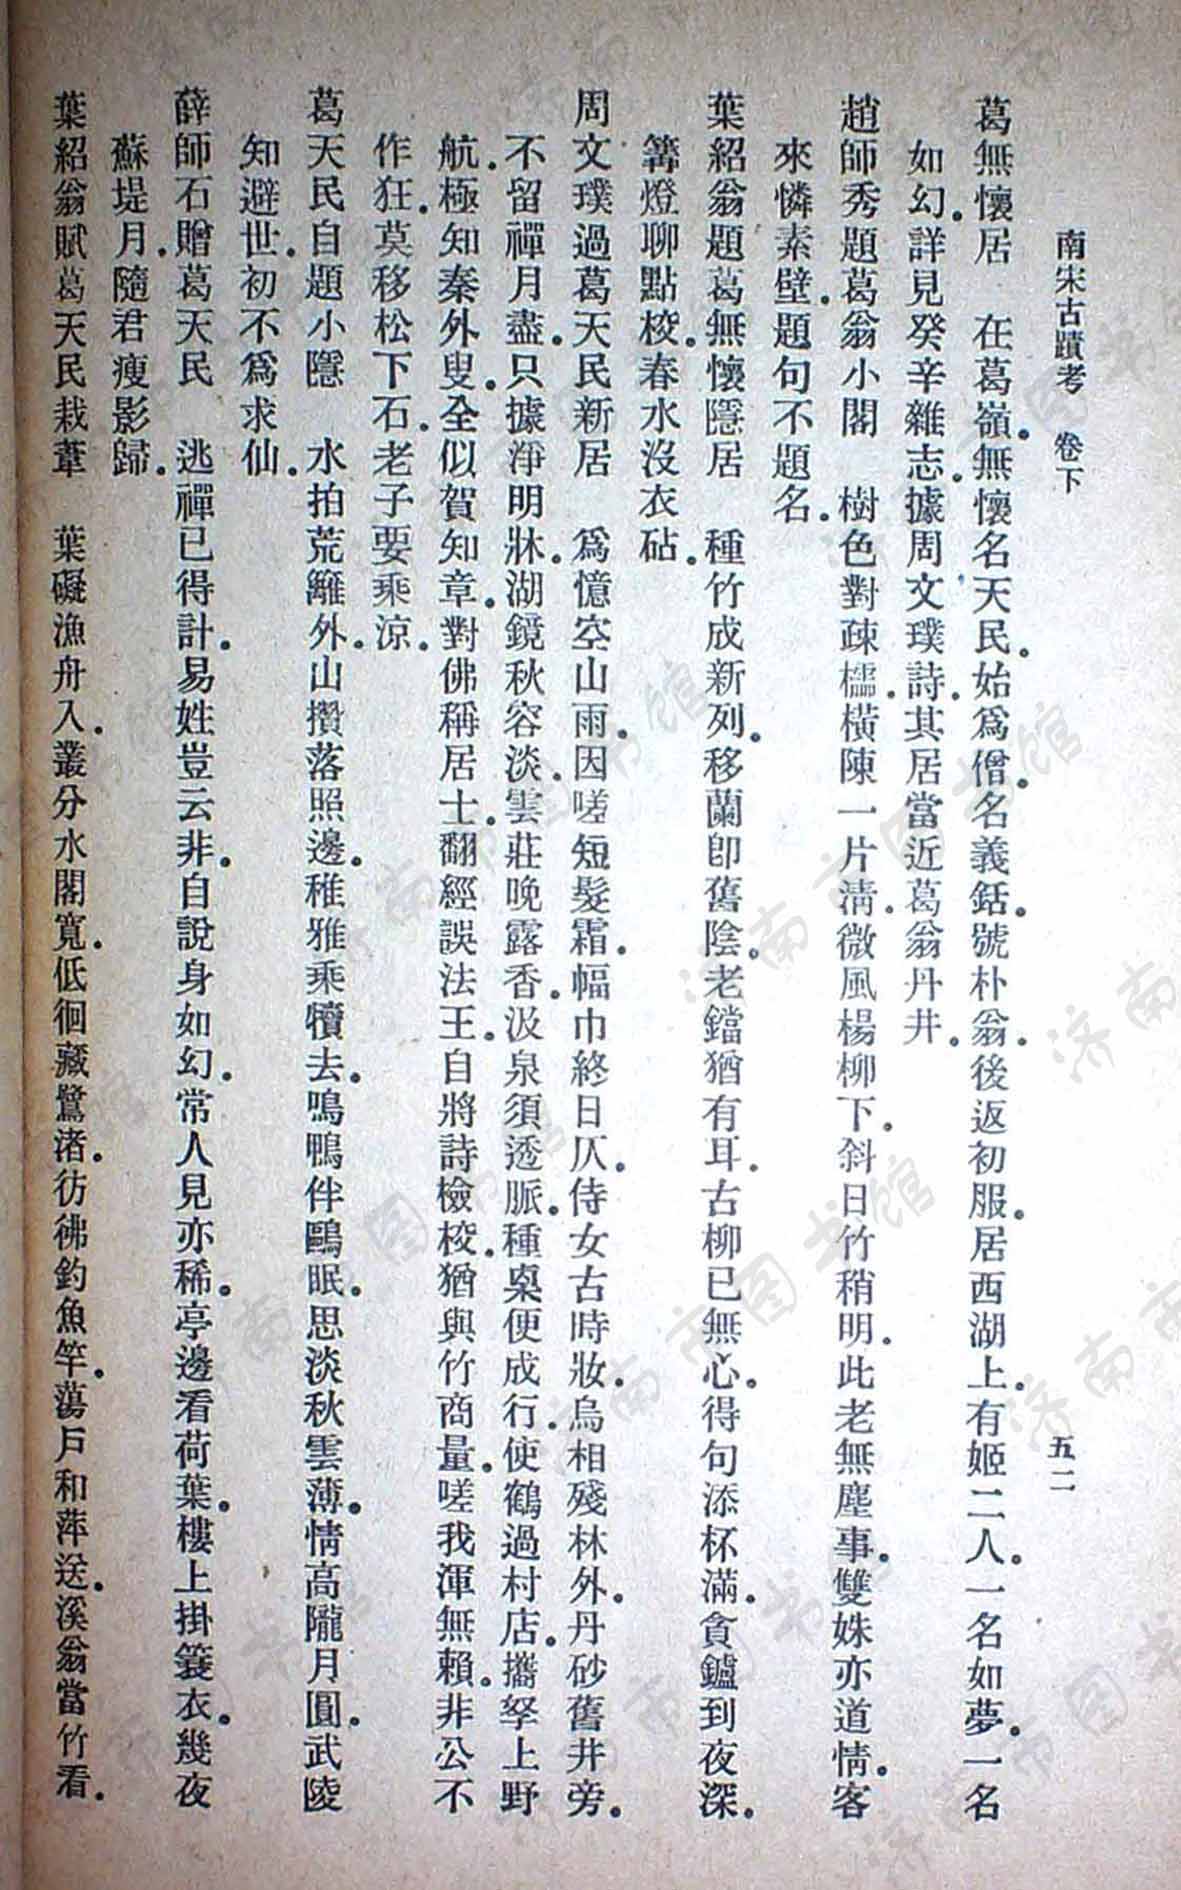 南宋古蹟考 卷下 五二
葛無懷居 在葛嶺。無懷名天民。始爲僧。名義銛。號朴翁。後返初服。居西湖上。有姬二人。一名如夢。一名
如幻。詳見癸辛雜志。據周文璞詩。其居當近葛翁丹井。
趙師秀題葛翁小閣 樹色對疎櫺。橫陳一片淸。微風楊柳下。斜日竹稍明。此老無塵事。雙姝亦道情。客
來憐素壁。題句不題名。
葉紹翁題葛無懷隱居 種竹成新列。移蘭卽舊陰。老鐺猶有耳。古柳已無心。得句添杯滿。貪鑪到夜深。
篝燈聊點校。春水沒衣砧。
周文璞過葛天民新居 爲憶空山雨。因嗟短髮霜。幅巾終日仄。侍女古時妝。烏相殘林外。丹砂舊井旁。
不留禪月盡。只據淨明牀。湖鏡秋容淡。雲莊晚露香。汲泉須透脈。種桌便成行。使鶴過村店。攜孥上野
航。極知秦外叟。全似賀知章。對佛稱居士。翻經誤法王。自將詩檢校。猶與竹商量。嗟我渾無賴。非公不
作狂。莫移松下石。老子要乘涼。
葛天民自題小隱 水拍荒籬外。山攢落照邊。稚雅乘犢去。鳴鴨伴鷗眠。思淡秋雲薄。情高隴月圓。武陵
知避世。初不爲求仙。
薛師石贈葛天民 逃禪已得計。易姓豈云非。自說身如幻。常人見亦稀。亭邊看荷葉。樓上掛簑衣。幾夜
蘇堤月。隨君瘦影歸。
葉紹翁賦葛天民栽葦 葉礙漁舟入。叢分水閣寬。低徊藏鷺渚。彷彿釣魚竿。蕩戶和萍送。溪翁當竹看。
济南市图书馆